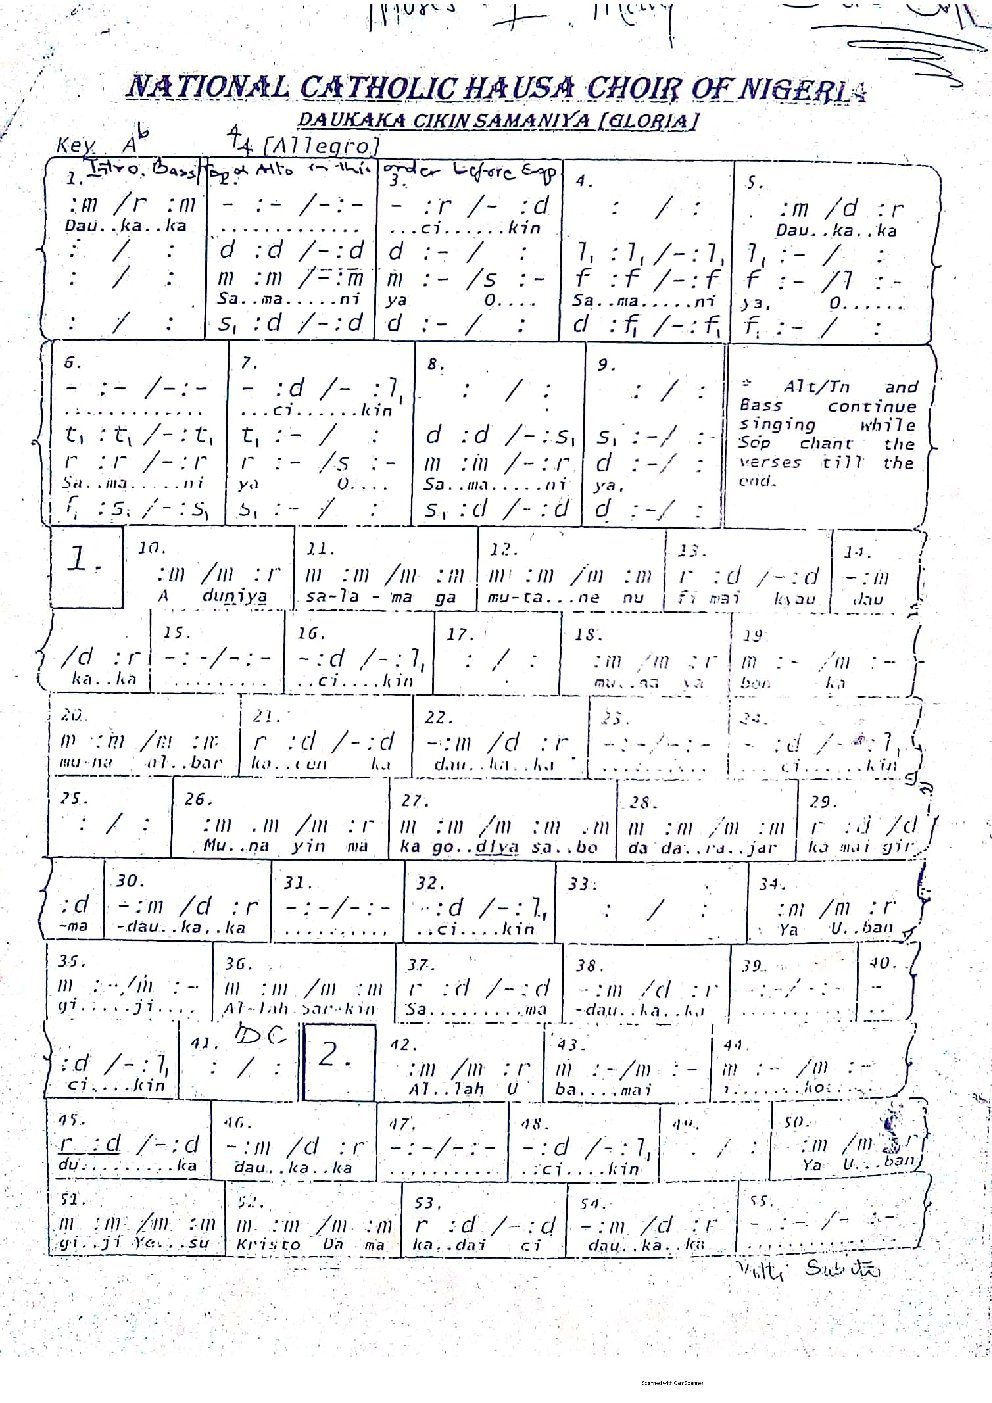 Moses . I . Many
NATIONAL CATHOLIC HAUSA CHOIR OF NIGERIA
DAUKAKA CIKIN SAMANIYA [GLORIA]
Key. Ab 4/4 [Allegro]
Intro. Bass Alto in this order before
1. 2. 3. 4. 5.
:m /r :m - :- /-:- - :r /- :d : / : . :m /d :r
Dau..ka..ka ............. ...ci......kin Dau..ka..ka
: / : d :d /-:d d :- / : l, :l, /-:l, l, :- / :
: / : m :m /-:m m :- /s :- f :f /-:f f :- /l :-
Sa..ma.....ni ya O.... Sa..ma.....ni ya, O......
: / : s, :d /-:d d :- / : d :f, /-:f, f, :- / :
6. 7. 8. 9.
- :- /-:- - :d /- :l, : / : : / :
............. ...ci......kin
t, :t, /-:t, t, :- / : d :d /-:s, s, :-/ :-
r :r /-:r r :- /s :- m :m /-:r d :-/ :
Sa..ma.....ni ya O.... Sa..ma......ni ya,
f, :s, /-:s, s, :- / : s, :d /-:d d :-/ :
* Alt/Tn and
Bass continue
singing while
Sop chant the
verses till the
end.
1. 10. 11. 12. 13. 14.
:m /m :r m :m /m :m m :m /m :m r :d /-:d -:m
A duniya sa-la - ma ga mu-ta...ne nu fi mai kyau dau
15. 16. 17. 18. 19
/d :r -:-/-:- -:d /-:l, : / : :m /m :r m :- /m :-
ka..ka ......... ..ci....kin mu..na ya bon ka
20. 21. 22. 23. 24.
m :m /m :m r :d /-:d -:m /d :r -:-/-:- - :d /- :l,
mu-na al..bar ka..cen ka dau..ka..ka .......... ci....kin
25. 26. 27. 28. 29.
: / : :m .m /m :r m :m /m :m .m m :m /m :m r :d /d
Mu..na yin ma ka go..diya sa..bo da da..ra..jar ka mai gir
30. 31. 32. 33: 34.
:d -:m /d :r -:-/-:- -:d /-:l, : / : :m /m :r
-ma -dau..ka..ka .......... ..ci....kin Ya U..ban
35. 36. 37. 38. 39. 40.
m :-/m :- m :m /m :m r :d /-:d -:m /d :r -:-/-:- -
gi.....ji.... Al-lah Sar-kin Sa.........ma -dau..ka..ka ..........
41. DC 2. 42. 43. 44.
:d /-:l, : / : :m /m :r m :-/m :- m :- /m :-
ci....kin Al..lah U ba....mai
45. 46. 47. 48. 49. 50.
r :d /-:d -:m /d :r -:-/-:- -:d /-:l, . / : :m /m :r
du.........ka dau..ka..ka .......... ..ci....kin Ya U...ban
51. 52. 53. 54. 55.
m :m /m :m m :m /m :m r :d /-:d -:m /d :r - :- /- :-
gi..ji Ye...su Kristo Da ma ka..dai ci dau..ka..ka .............
Scanned with CamScanner